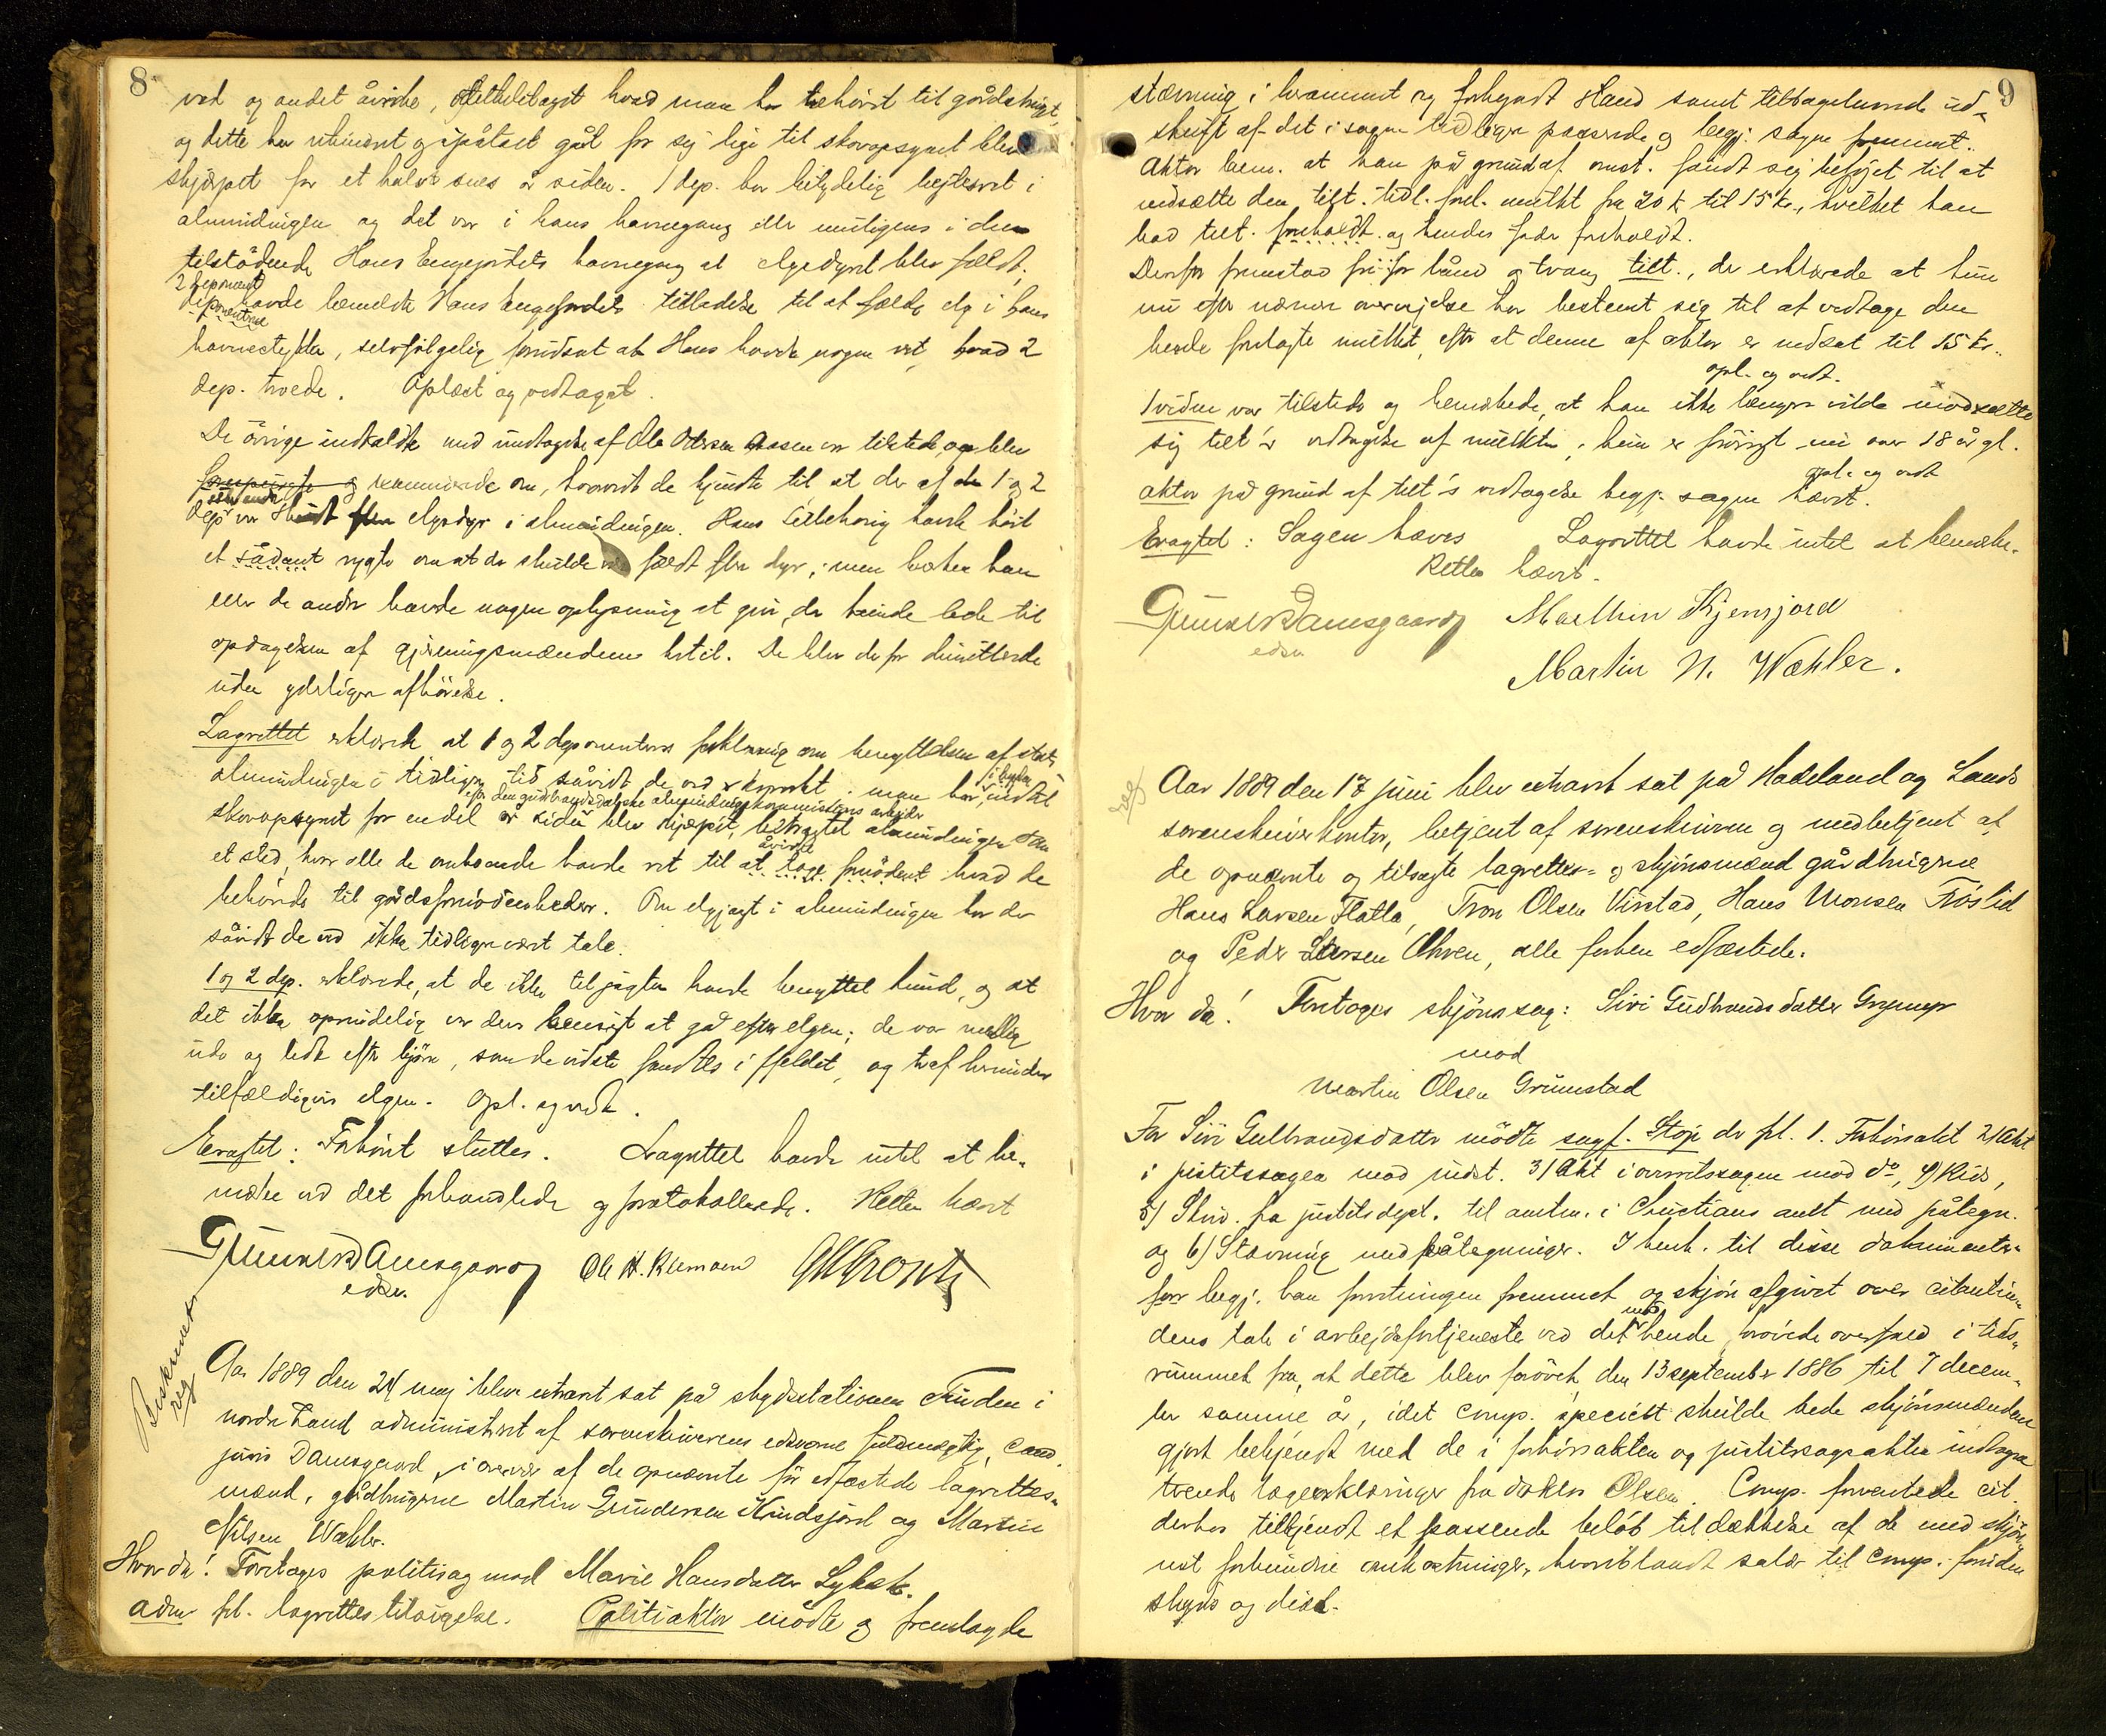 8
ved og andet åvirke, hvad man har behövet til gårdsbrug,
og dette har uhindret og upåtalt gåt for sig lige til skovopsynet blev
skjærpet for et halvt snes år siden. 1 dep. har betydelig bejtesret i
almindingen og det var i hans havnegang eller muligens i den
tilstödende Hans Engejordets havnegang at elgsdyret blev fældt.
2 deponent
dep. havde bemeldte Hans Engejordets tilladelse til at fælde elg i hans
havnestykke, selvfölgelig forudsat at Hans havde nogen ret, hvad 2
dep. troede. Oplæst og vedtaget.
De övrige indkaldte med undtagelse af Ole Olersen Aasen var tilstede og blev
examinerede om, hvorvidt de kjendte til at der af 1 og 2
dep var skudt elgsdyr i almindingen. Hans havde hört
et sådant rygte om at der skulde være fældt flere dyr; men hverken han
eller de andre havde nogen oplysning at give, der kunde lede til
opdagelsen af gjerningsmændene hertil. De blev derfor dimitterede
uden yderligere afhörelse.
Lagrettet erklærede at 1 og 2 deponenteres forklaring om benyttelsen af stats
almindingen i tidligere tid såvidt de ved er korrekt; man har i bygden indtil
efter den gudbrandsdalske almindingskommissions arbejder
skovopsynet for endel år siden blev skjærpet, betragtet almindingen som
et sted, hvor alle de omboende havde ret til at tage fornödent åvirke hvad de
behövede til gårdsfornödenheder. Om elgjagt i almindingen har der
såvidt de ved ikke tidligere været tale.
1 og 2 dep. erklærede, at de ikke til jagten havde benyttet hund, og at
det ikke oprindelig var deres hensigt at gå efter elgen; de var nemlig
ude og ledte efter björn, som de vidste fandtes i fjeldet, og traf herunder
tilfældigvis elgen. Opl. og vedt.
Eragtet: Forhöret sluttes. Lagrettet havde intet at be-
mærke ved det forhandlede og protokollerede. Retten hævet
Gunner Damsgaard Ole H. Klemoen
edsv.
Beskrevet
reg
Aar 1889 den 24 maj blev extraret sat på skydsstationen Tinden i
nordre Land administreret af sorenskriverens edsvorne fuldmægtig, cand.
juris Damsgaard, i overvær af de opnævnte för edfæstede lagrettes-
mænd, gårdbrugerne Martin Gundersen Kindsjord og Martin
Nilsen Wæhler.
Hvor da! Foretoges politisag mod Marie Hansdatter Lybek.
Adm frl. lagrettes tilsigelse. Politiaktor mödte og fremlagde
9
stævning i beramment og forkyndt stand samt tilbageleverede ud-
skrift af det i sagen tidligere passerede og begj. sagen fremmet.
Aktor bem. at han på grund af omst. fandt sig beföjet til at
nedsætte den tilt. tidl. forel. mulkt fra 20 kr til 15 kr., hvilket han
bad tilt. foreholdt og hendes fader foreholdt.
Derefter fremstod fri for bånd og tvang tilt., der erklærede at hun
nu efter nærmere overvejelse har bestemt sig til at vedtage den
hende forelagte mulkt, efter at denne af aktor er nedsat til 15 kr.
opl. og vedt.
1 vidne var tilstede og bemærkede, at han ikke længere vilde modsætte
sig tilt's vedtagelse af mulkten; hun er forövrigt nu over 18 år gl.
opl. og vedt
Aktor på grund af tilt's vedtagelse begj. sagen hævet.
Eragtet: Sagen hæves Lagrettet havde intet at bemærke.
Retten hævet.
Gunner Damsgaard Marthin Kjensjord
edsv
Martin N. Wæhler.
reg
Aar 1889 den 17 juni blev extraret sat på Hadeland og Lands
sorenskriverkontor, betjent af sorenskriveren og medbetjent af
de opnævnte og tilsagte lagrettes- og skjönsmænd gårdbrugerne
Hans Larsen Flatla, Tron Olsen Virstad, Hans Monsen Tröslid
og Peder Larsen Öhren, alle forhen edfæstede.
Hvor da! Foretoges skjönssag: Siri Gudbrandsdatter
mod
Martin Olsen Grimstad
For Siri Gulbrandsdatter mödte sagf. Stoje der frl. 1. Forhörsakt 2/Akt
i justitssagen mod indst. 3/ Akt i overretssagen mod do, 4/ Kid,
5/ Skriv. fra justitsdept. til amtm. i Christians amt med påtegn.
og 6/ Stævning med påtegninger. I henh. til disse dokumenter
begj. han forretningen fremmet og skjön afgivet over citantin-
dens tab i arbejdsfortjeneste ved det mod hende övede overfald i tids-
rummet fra, at dette blev forövet, den 13 september 1886 til 7 decem-
ber samme år, idet comp. specielt skulde bede skjönsmændene
gjort bekjendt med de i forhörsakten og justitssagsakten indtagne
tvende lægeerklæringer fra doktor Olsen. Comp. forventede cit.
derhos tilkjendt et passende belöb til dækkelse af de med skjön-
net forbundne omkostninger, hvoriblandt salær til comp. foruden
skyds og diæt.